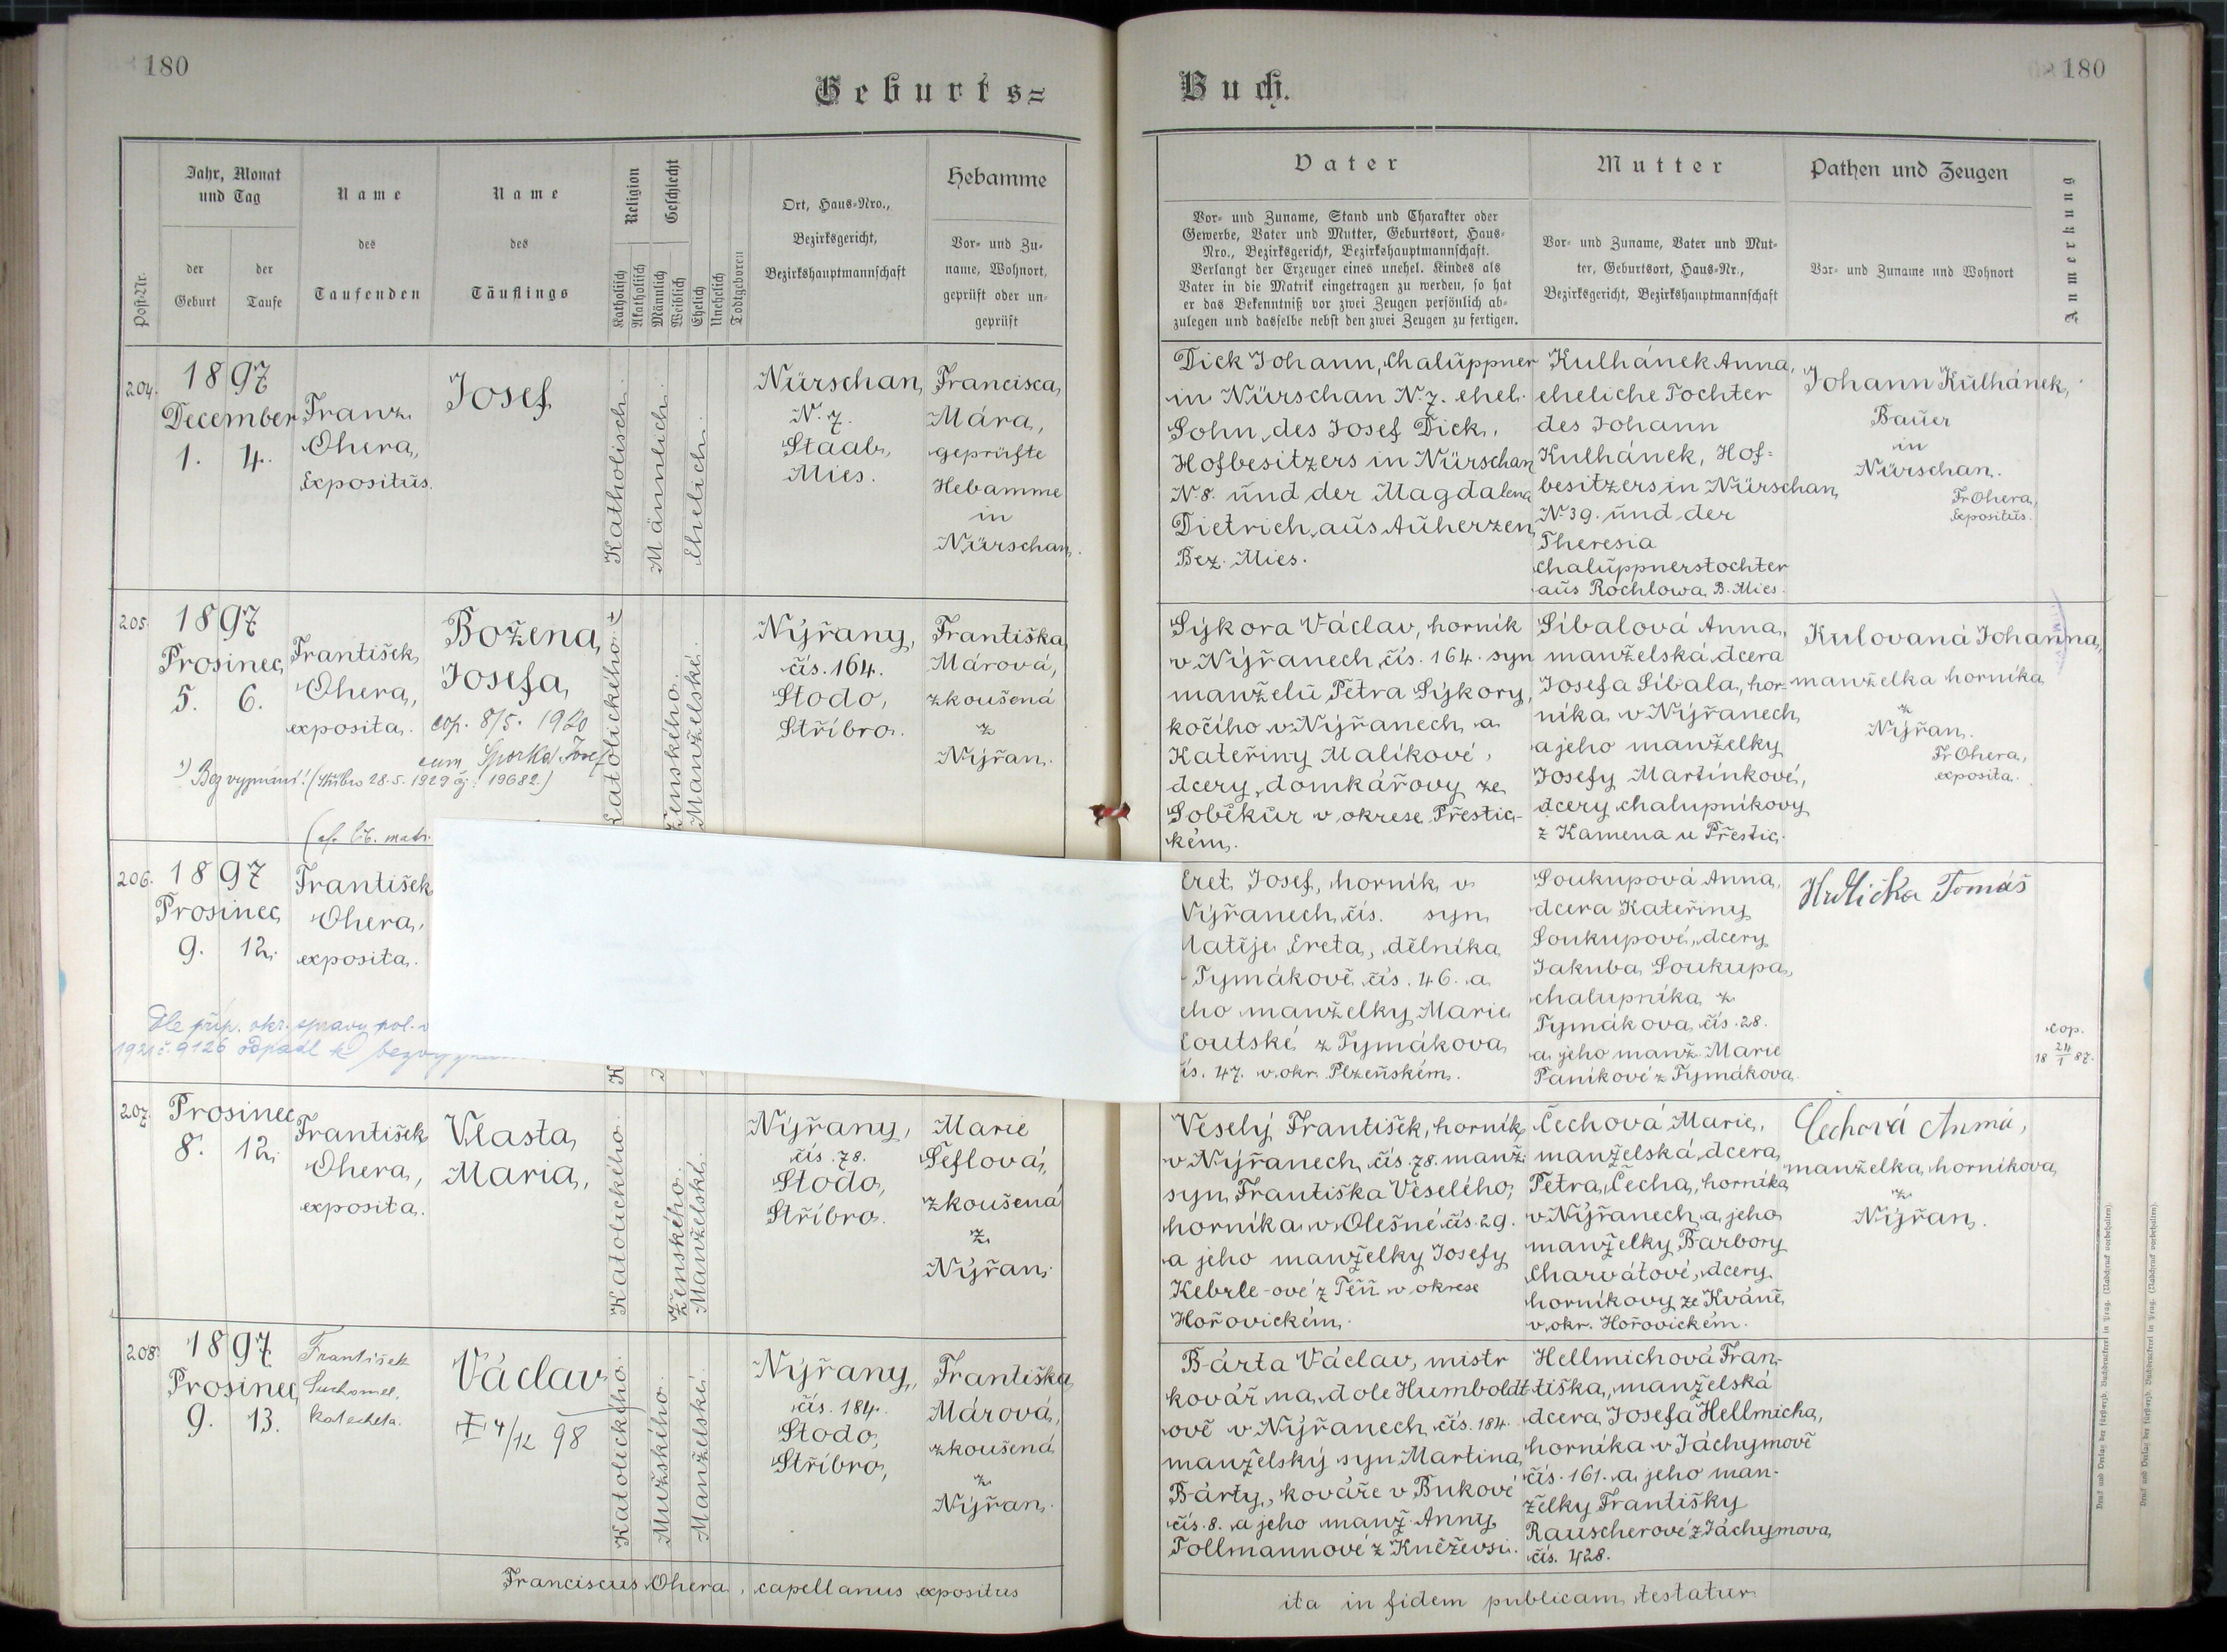 180
Geburts=
Buch.
180
Post-Nr.
Jahr, Monat
und Tag
der
Geburt
der
Taufe
Name
des
Taufenden
Name
des
Täuflings
Religion
Katholisch
Akatholisch
Geschlecht
Männlich
Weiblich
Ehelich
Unehelich
Todtgeboren
Ort, Haus-Nro.,
Bezirksgericht,
Bezirkshauptmannschaft
Hebamme
Vor- und Zu-
name, Wohnort,
geprüft oder un-
geprüft
Vater
Vor- und Zuname, Stand und Charakter oder
Gewerbe, Vater und Mutter, Geburtsort, Haus-
Nro., Bezirksgericht, Bezirkshauptmannschaft.
Verlangt der Erzeuger eines unehel. Kindes als
Vater in die Matrik eingetragen zu werden, so hat
er das Bekenntniß vor zwei Zeugen persönlich ab-
zulegen und dasselbe nebst den zwei Zeugen zu fertigen.
Mutter
Vor- und Zuname, Vater und Mut-
ter, Geburtsort, Haus-Nr.,
Bezirksgericht, Bezirkshauptmannschaft
Pathen und Zeugen
Vor- und Zuname und Wohnort
Anmerkung
204.
1897
December
1. 4.
Franz
Ohera,
Expositus.
Josef
Katholisch.
Männlich.
Ehelich.
Nürschan,
N. 7.
Staab,
Mies.
Francisca
Mára,
geprüfte
Hebamme
in
Nürschan.
Dick Johann, Chalüppner
in Nürschan N. 7. ehel.
Sohn des Josef Dick,
Hofbesitzers in Nürschan
N. 8. und der Magdalena
Dietrich aus Auherzen,
Bez. Mies.
Kulhánek Anna,
eheliche Tochter
des Johann
Kulhánek, Hof-
besitzers in Nürschan,
N. 39. und der
Theresia
Chalüppnerstochter
aus Rochlowa, B. Mies.
Johann Kulhánek,
Bauer
in
Nürschan.
Fr Ohera,
Expositus.
205.
1897
Prosinec
5. 6.
František
Ohera,
exposita.
Božena,
Josefa,
cop. 8/5. 1920
cum Sporka Josef
1) Bez vyznání! (Stříbro 28.5.1929 čj. 19682.)
(cf. lit. matr.
Katolického
Ženského.
Manželské.
Nýřany,
čís. 164.
Stodo,
Stříbro.
Františka
Márová,
zkoušená
z
Nýřan.
Sýkora Václav, horník
v Nýřanech čís. 164. syn
manželů Petra Sýkory,
kočího v Nýřanech a
Kateřiny Malíkové,
dcery domkářovy ze
Soběkur v okrese Přestic-
kém.
Sibalová Anna,
manželská dcera
Josefa Sibala, hor-
níka v Nýřanech
a jeho manželky
Josefy Martínkové,
dcery chalupníkovy
z Kamena u Přestic.
Kulovaná Johanna,
manželka horníka
z
Nýřan.
Fr Ohera,
exposita.
206.
1897
Prosinec
9. 12.
František
Ohera,
exposita.
Dle příp. okr. správy pol. v
1921 č. 9126 odpadl k
Eret Josef, horník v
Nýřanech čís. syn
Matěje Ereta, dělníka
Tymákově čís. 46. a
jeho manželky Marie
Loutské z Tymákova
čís. 47. v okr. Plzeňském.
Soukupová Anna,
dcera Kateřiny
Soukupové, dcery
Jakuba Soukupa,
chalupníka z
Tymákova čís. 28.
a jeho manž. Marie
Paníkové z Tymákova.
Hrdlička Tomáš
cop.
18 24/1 87.
207.
Prosinec
8. 12.
František
Ohera,
exposita.
Vlasta,
Maria,
Katolického.
Ženského.
Manželské.
Nýřany,
čís. 78.
Stodo,
Stříbro.
Marie
Šeflová,
zkoušená
z
Nýřan.
Veselý František, horník
v Nýřanech čís. 78. manž.
syn Františka Veselého,
horníka v Olešné čís. 29.
a jeho manželky Josefy
Kebrle-ové z Těň v okrese
Hořovickém.
Čechová Marie,
manželská dcera
Petra Čecha, horníka
v Nýřanech a jeho
manželky Barbory
Charvátové, dcery
horníkovy ze Kváně,
v okr. Hořovickém.
Čechová Anna,
manželka horníkova
z
Nýřan.
208.
1897
Prosinec
9. 13.
František
Suchomel,
katecheta.
Václav
† 4/12 98
Katolického.
Mužského.
Manželské.
Nýřany,
čís. 184.
Stodo,
Stříbro,
Františka
Márová,
zkoušená
z
Nýřan.
Bárta Václav, mistr
kovář na dole Humboldt-
ově v Nýřanech čís. 184.
manželský syn Martina
Bárty, kováře v Bukové
čís. 8. a jeho manž. Anny
Tollmannové z Kněževsi.
Hellmichová Fran-
tiška, manželská
dcera Josefa Hellmicha,
horníka v Jáchymově
čís. 161. a jeho man-
želky Františky
Rauscherové z Jáchymova,
čís. 428.
Franciscus Ohera, capellanus expositus
ita in fidem publicam testatur.
Druck und Verlag der fürsterzb. Buchdruckerei in Prag. (Nachdruck vorbehalten).
Druck und Verlag der fürsterzb. Buchdruckerei in Prag. (Nachdruck vorbehalten).